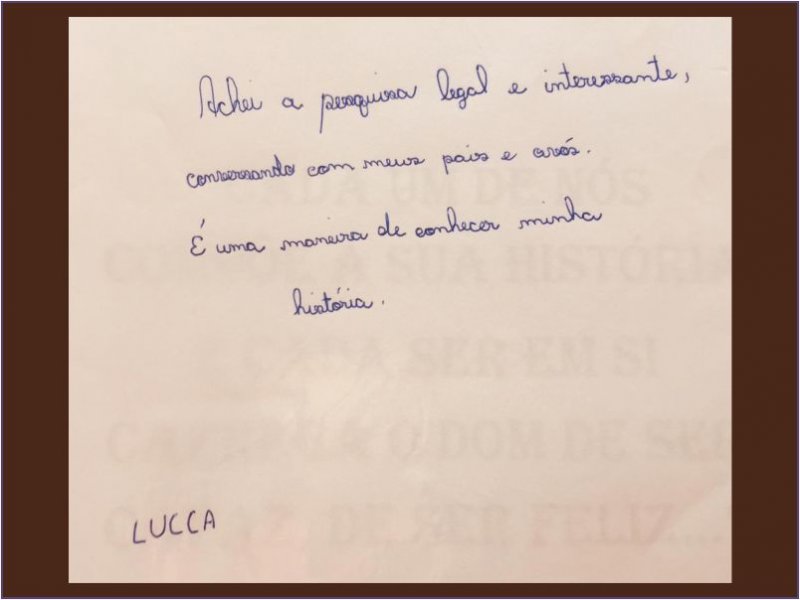 Achei a pesquisa legal e interessante,
conversando com meus pais e avós.
É uma maneira de conhecer minha
história.
CADA UM DE NÓS
COMPÕE A SUA HISTÓRIA
CADA SER EM SI
CARREGA O DOM DE SER
CAPAZ, DE SER FELIZ...
LUCCA